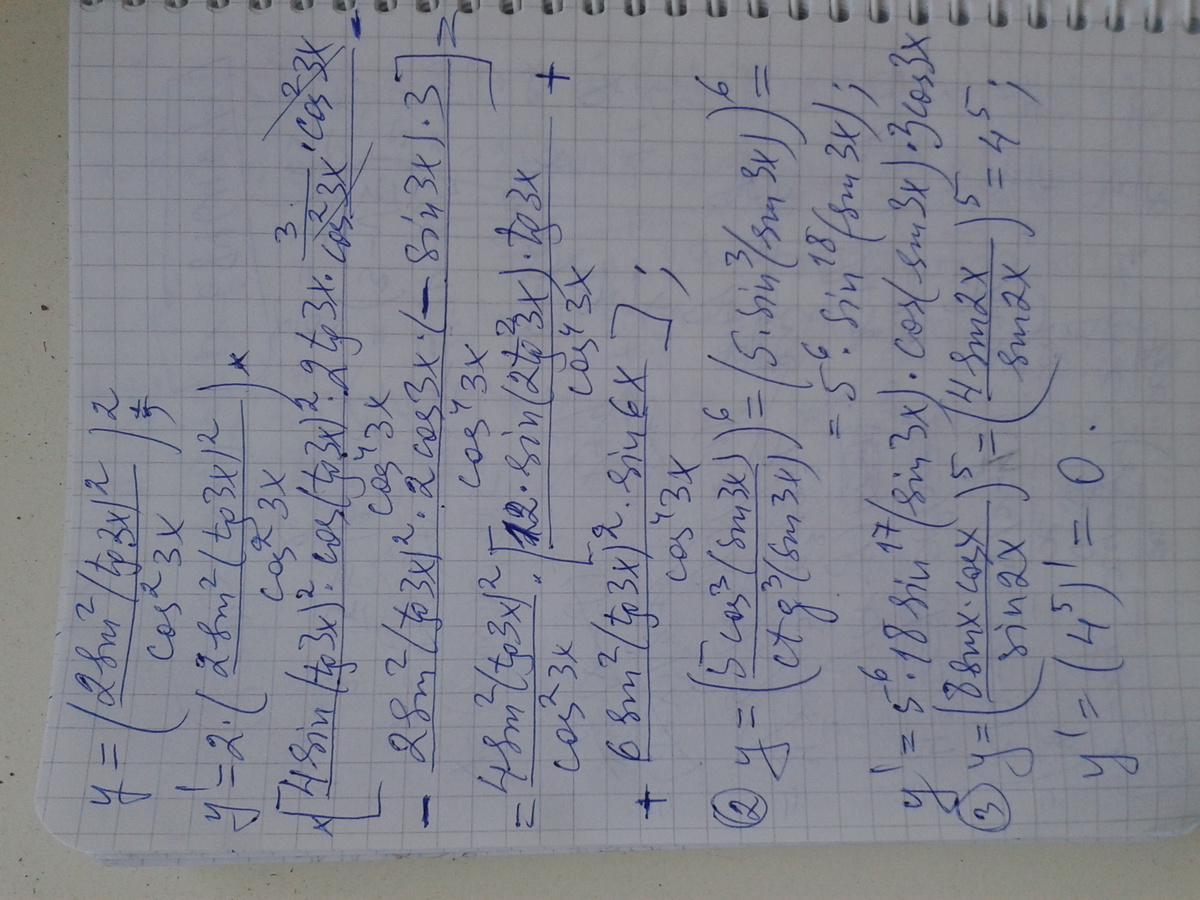 y = (2sin²(tg3x)² / cos²3x)²
y' = 2·(2sin²(tg3x)² / cos²3x)×
×[4sin(tg3x)²·cos(tg3x)²·2tg3x·3/cos²3x·cos²3x / cos⁴3x -
- 2sin²(tg3x)²·2cos3x·(-sin3x)·3 / cos⁴3x] =
= 4sin²(tg3x)² / cos²3x·[12·sin(2tg²3x)·tg3x / cos⁴3x +
+ 6sin²(tg3x)²·sin6x / cos⁴3x];
② y = (5cos³(sin3x) / ctg³(sin3x))⁶ = (5·sin³(sin3x))⁶ =
= 5⁶·sin¹⁸(sin3x);
y' = 5⁶·18sin¹⁷(sin3x)·cos(sin3x)·3cos3x
③ y = (8sinx·cosx / sin2x)⁵ = (4sin2x / sin2x)⁵ = 4⁵;
y' = (4⁵)' = 0.